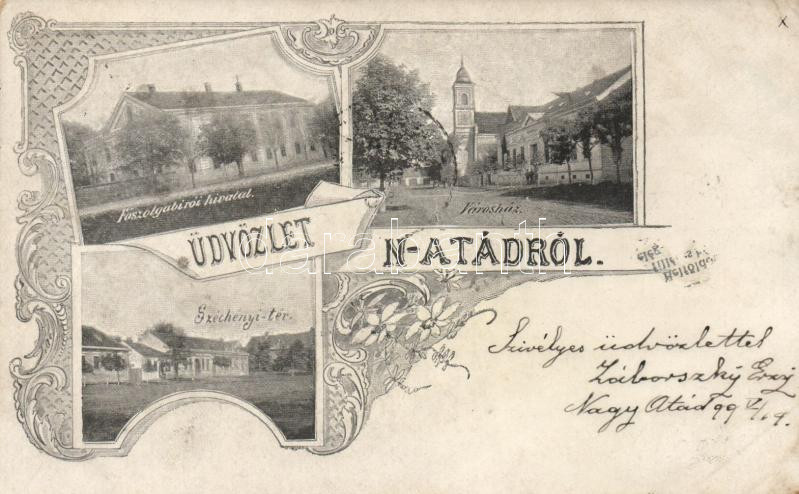 Főszolgabírói hivatal.
Városház.
ÜDVÖZLET N-ATÁDRÓL.
Széchényi-tér.
Szivélyes üdvözlettel
Záborszky Erzsi
Nagy Atád 99 V/19.
darabanth.com